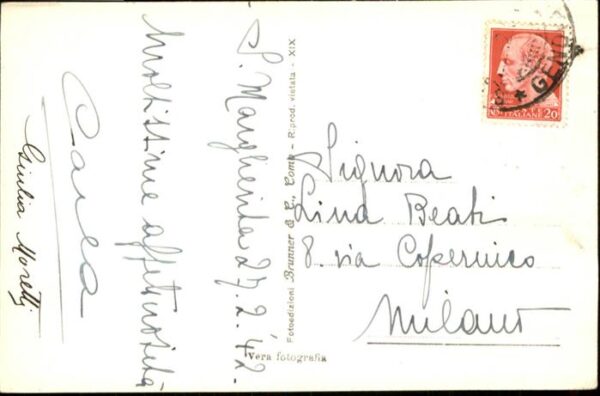 S. Margherita 27.2.42.
Moltissime affettuosità
Carla
Giulia Moretti
Fotoedizioni Brunner & C., Como - Riprod. vietata - XIX
Vera fotografia
Signora
Lina Beati
8. via Copernico
Milano
ITALIANE 20
GENO